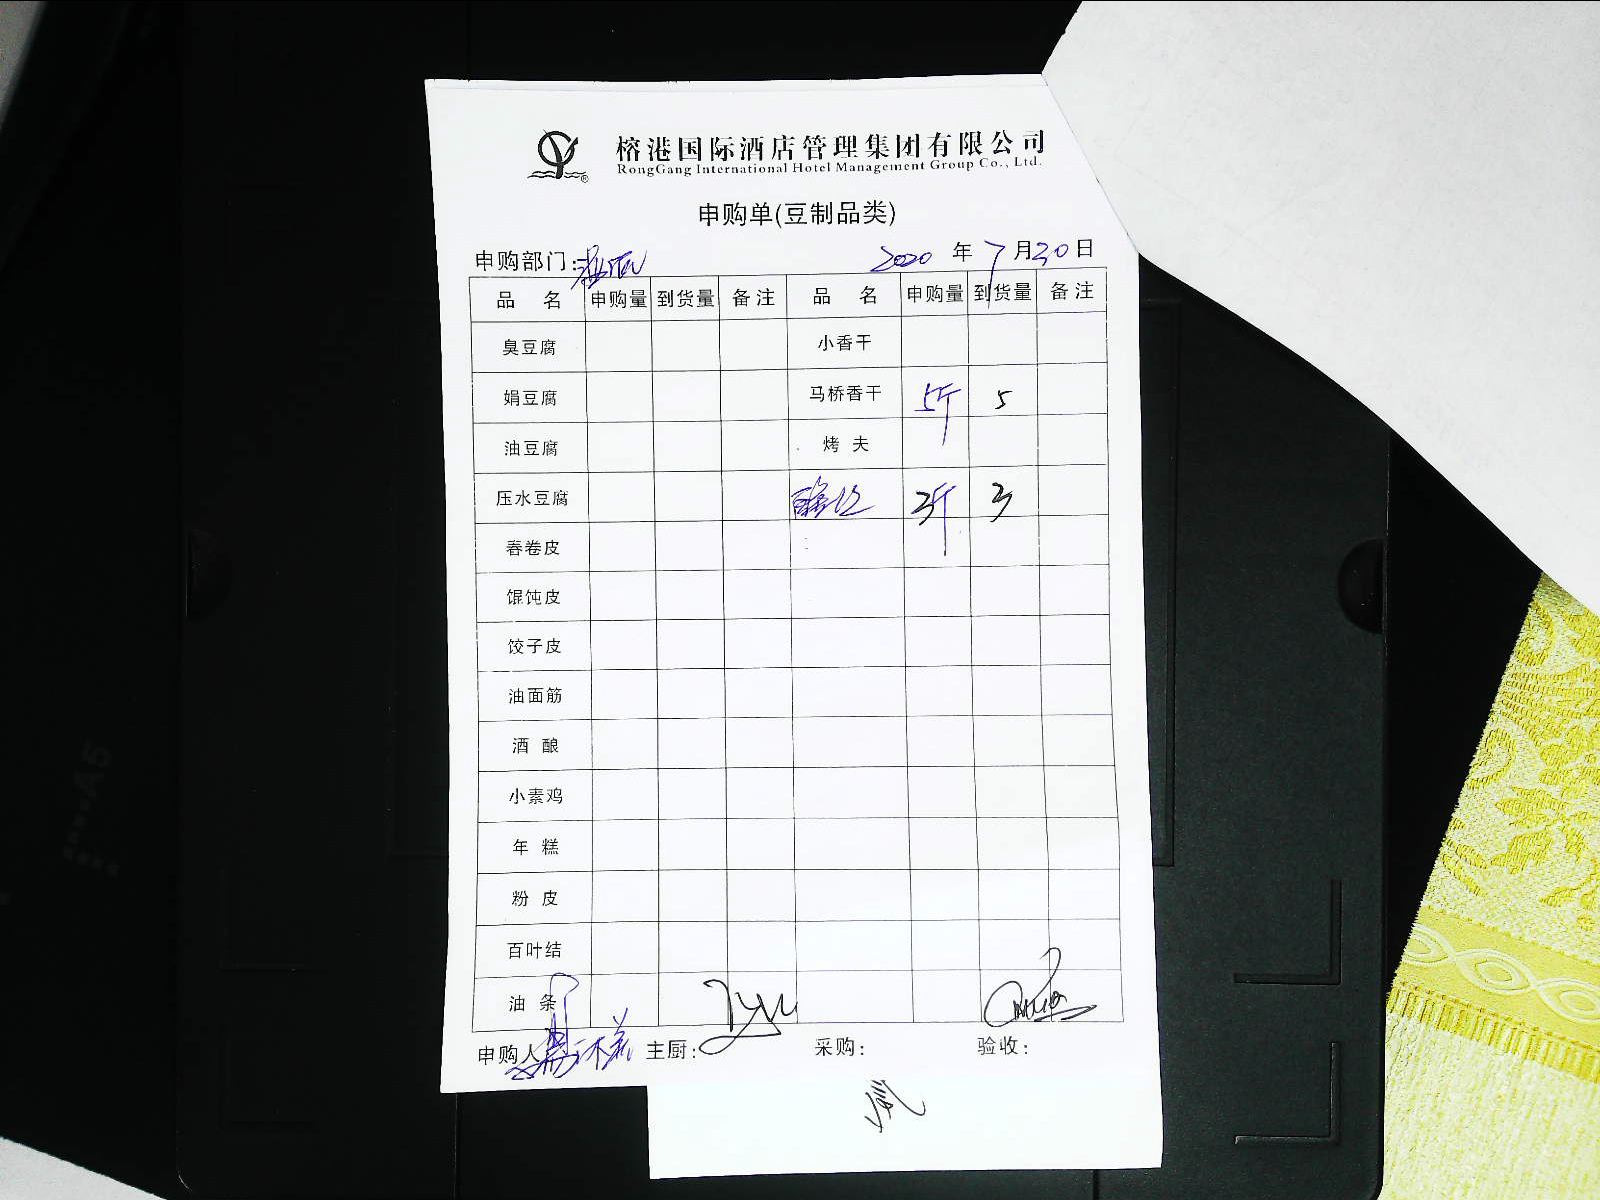 榕港国际酒店管理集团有限公司
RongGang International Hotel Management Group Co., Ltd.
申购单(豆制品类)
申购部门: 2020 年 7 月 30 日
品 名 申购量 到货量 备注 品 名 申购量 到货量 备注
臭豆腐 小香干
娟豆腐 马桥香干 5斤 5
油豆腐 烤 夫
压水豆腐 3斤 3
春卷皮
馄饨皮
饺子皮
油面筋
酒 酿
小素鸡
年 糕
粉 皮
百叶结
油 条
申购人 主厨: 采购: 验收:
A5